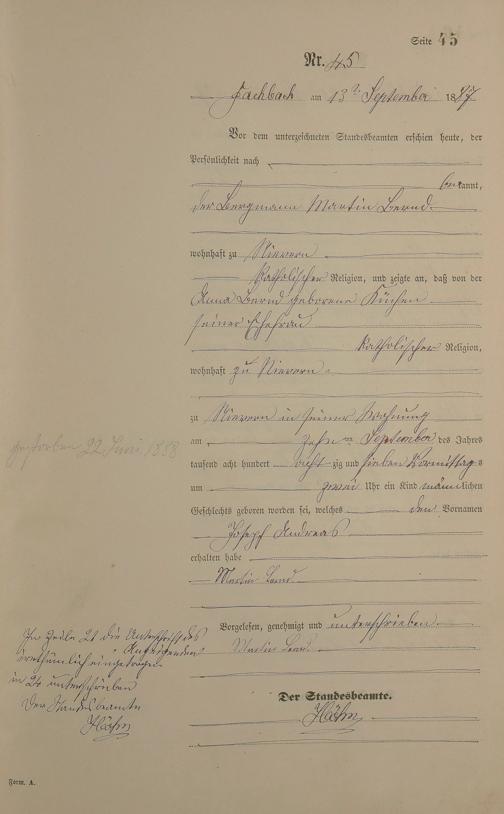 Seite 45
Nr. 45
Fachbach am 13ten September 1887
Vor dem unterzeichneten Standesbeamten erschien heute, der
Persönlichkeit nach
bekannt,
der Bergmann Martin Bernd
wohnhaft zu Nievern
katholischer Religion, und zeigte an, daß von der
Anna Bernd geborene Küchen
seiner Ehefrau
katholischer Religion,
wohnhaft zu Nievern
zu Nievern in seiner Wohnung
am zehnten September des Jahres
tausend acht hundert achtzig und sieben Vormittags
um zwei Uhr ein Kind männlichen
Geschlechts geboren worden sei, welches den Vornamen
Joseph Andreas
erhalten habe
Martin Bernd
Vorgelesen, genehmigt und unterschrieben
Martin Bernd
Der Standesbeamte.
Höhn
gestorben 22 Juni 1888
In Zeile 21 die Unterschrift des
Anzeigenden
irrthümlich eingetragen
in 26 unterschrieben
Der Standesbeamte
Höhn
Form. A.